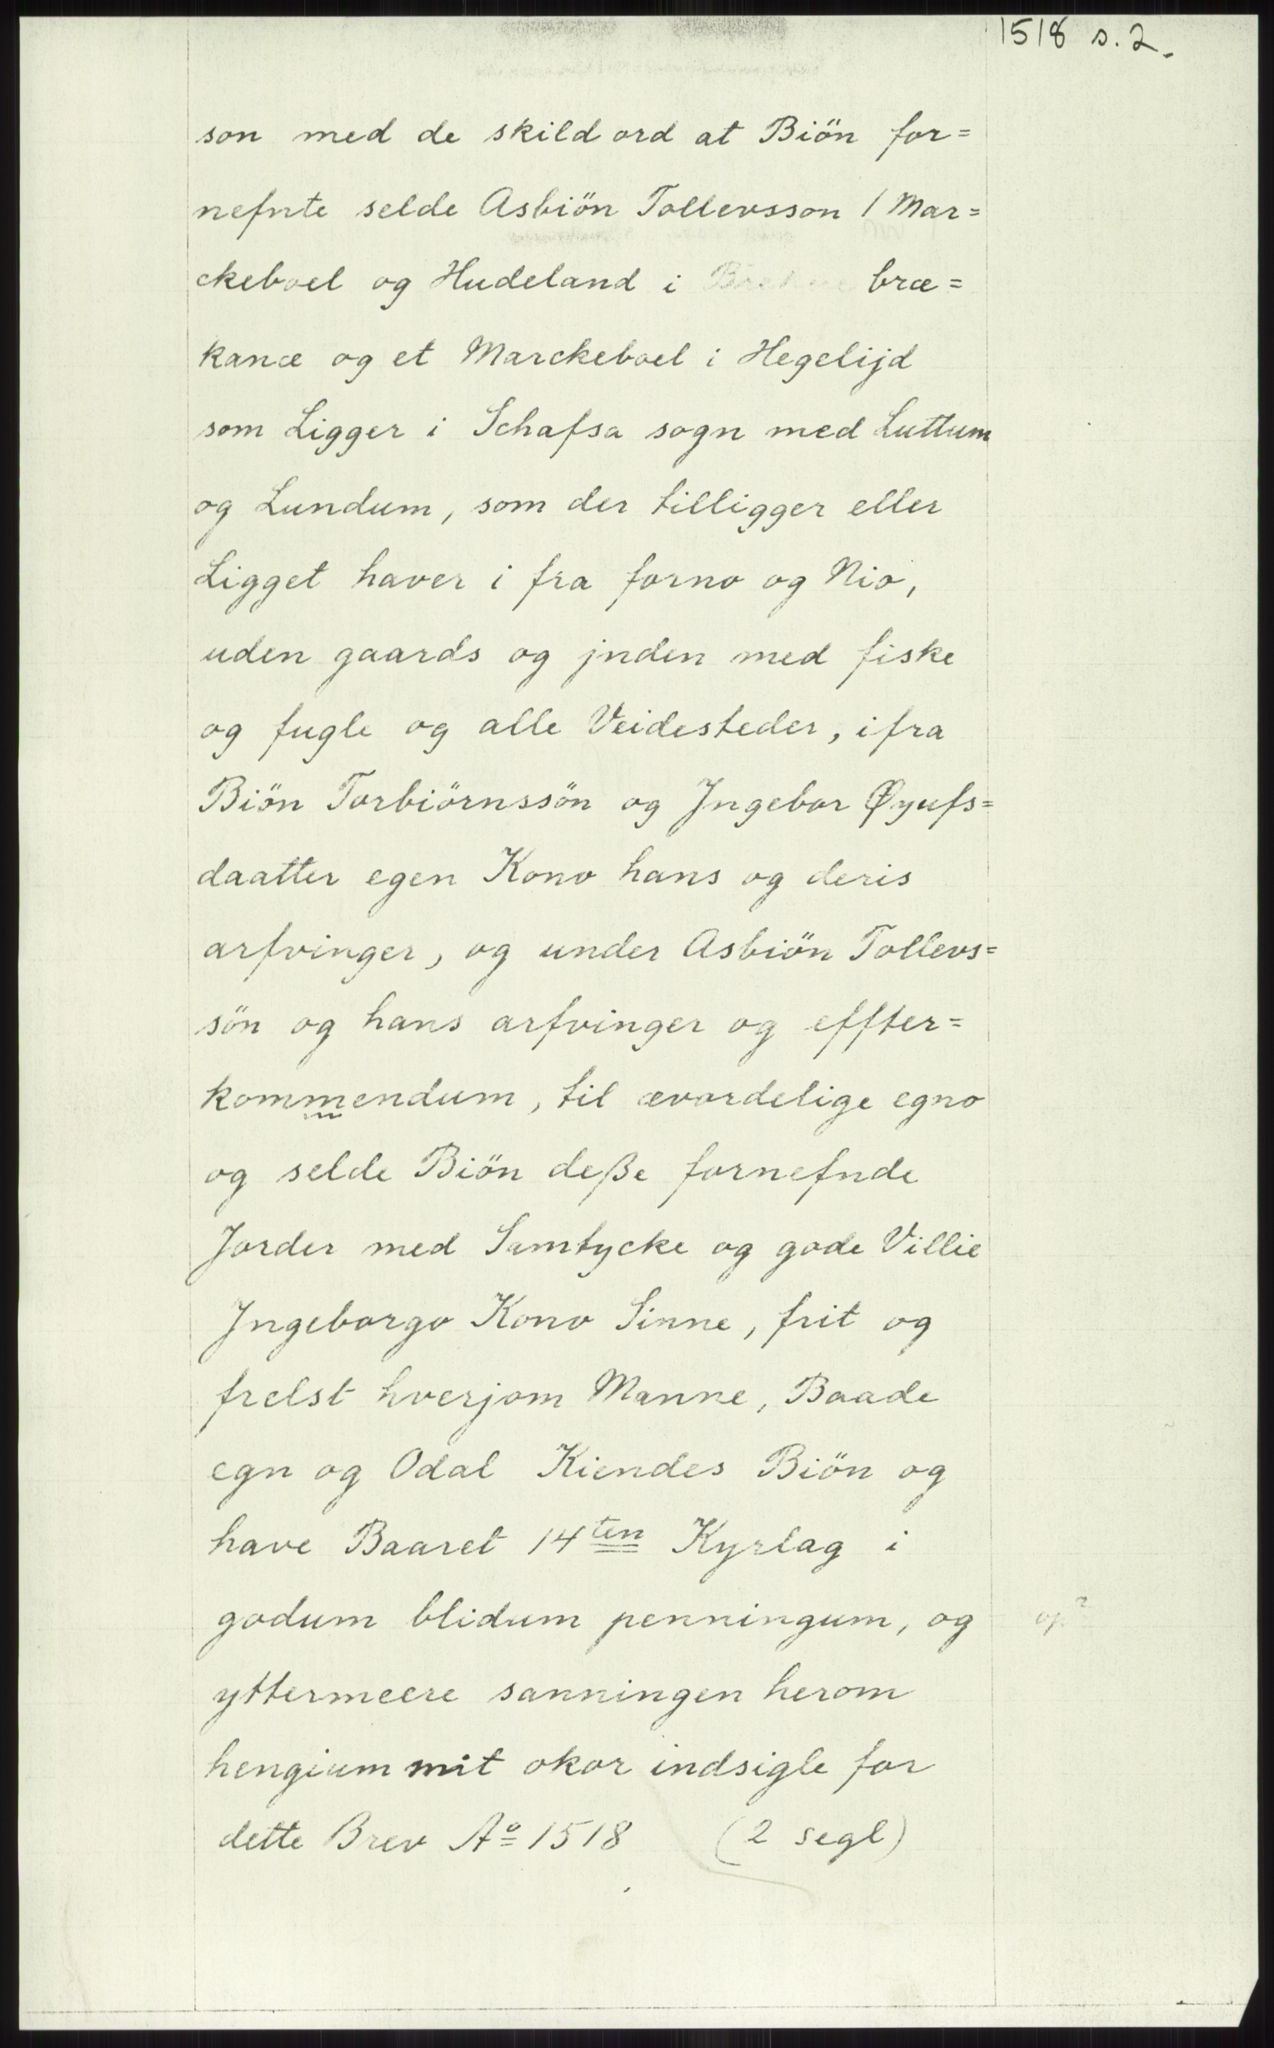 1518 s. 2.
son med de skild ord at Biön for=
nefnte selde Asbiön Tollevsson / Mar=
ckeboel og Hudeland i bræ=
kanæ og et Marckeboel i Hegelijd
som Ligger i Schafsa sogn med Luttum
og Lundum, som der tilligger eller
Ligget haver i fra forno og Nio,
uden gaards og jnden med fiske
og fugle og alle Veidesteder, ifra
Biön Torbiörnssön og Jngebor Øyufs=
daatter egen Kono hans og deris
arfvinger, og under Asbiön Tollevs=
sön og hans arfvinger og effter=
kommendum, til ævordelige egno
og selde Biön deße fornefnde
Jorder med Samtycke og gode Villie
Jngeborgo Kono Sinne, frit og
frelst hverjom Manne, Baade
egn og Odal Kiendes Biön og
have Baaret 14ten Kyrlag i
godum blidum penningum, og op?
yttermeere sanningen herom
hengium mit okor indsigle for
dette Brev Aº 1518 (2 segl)